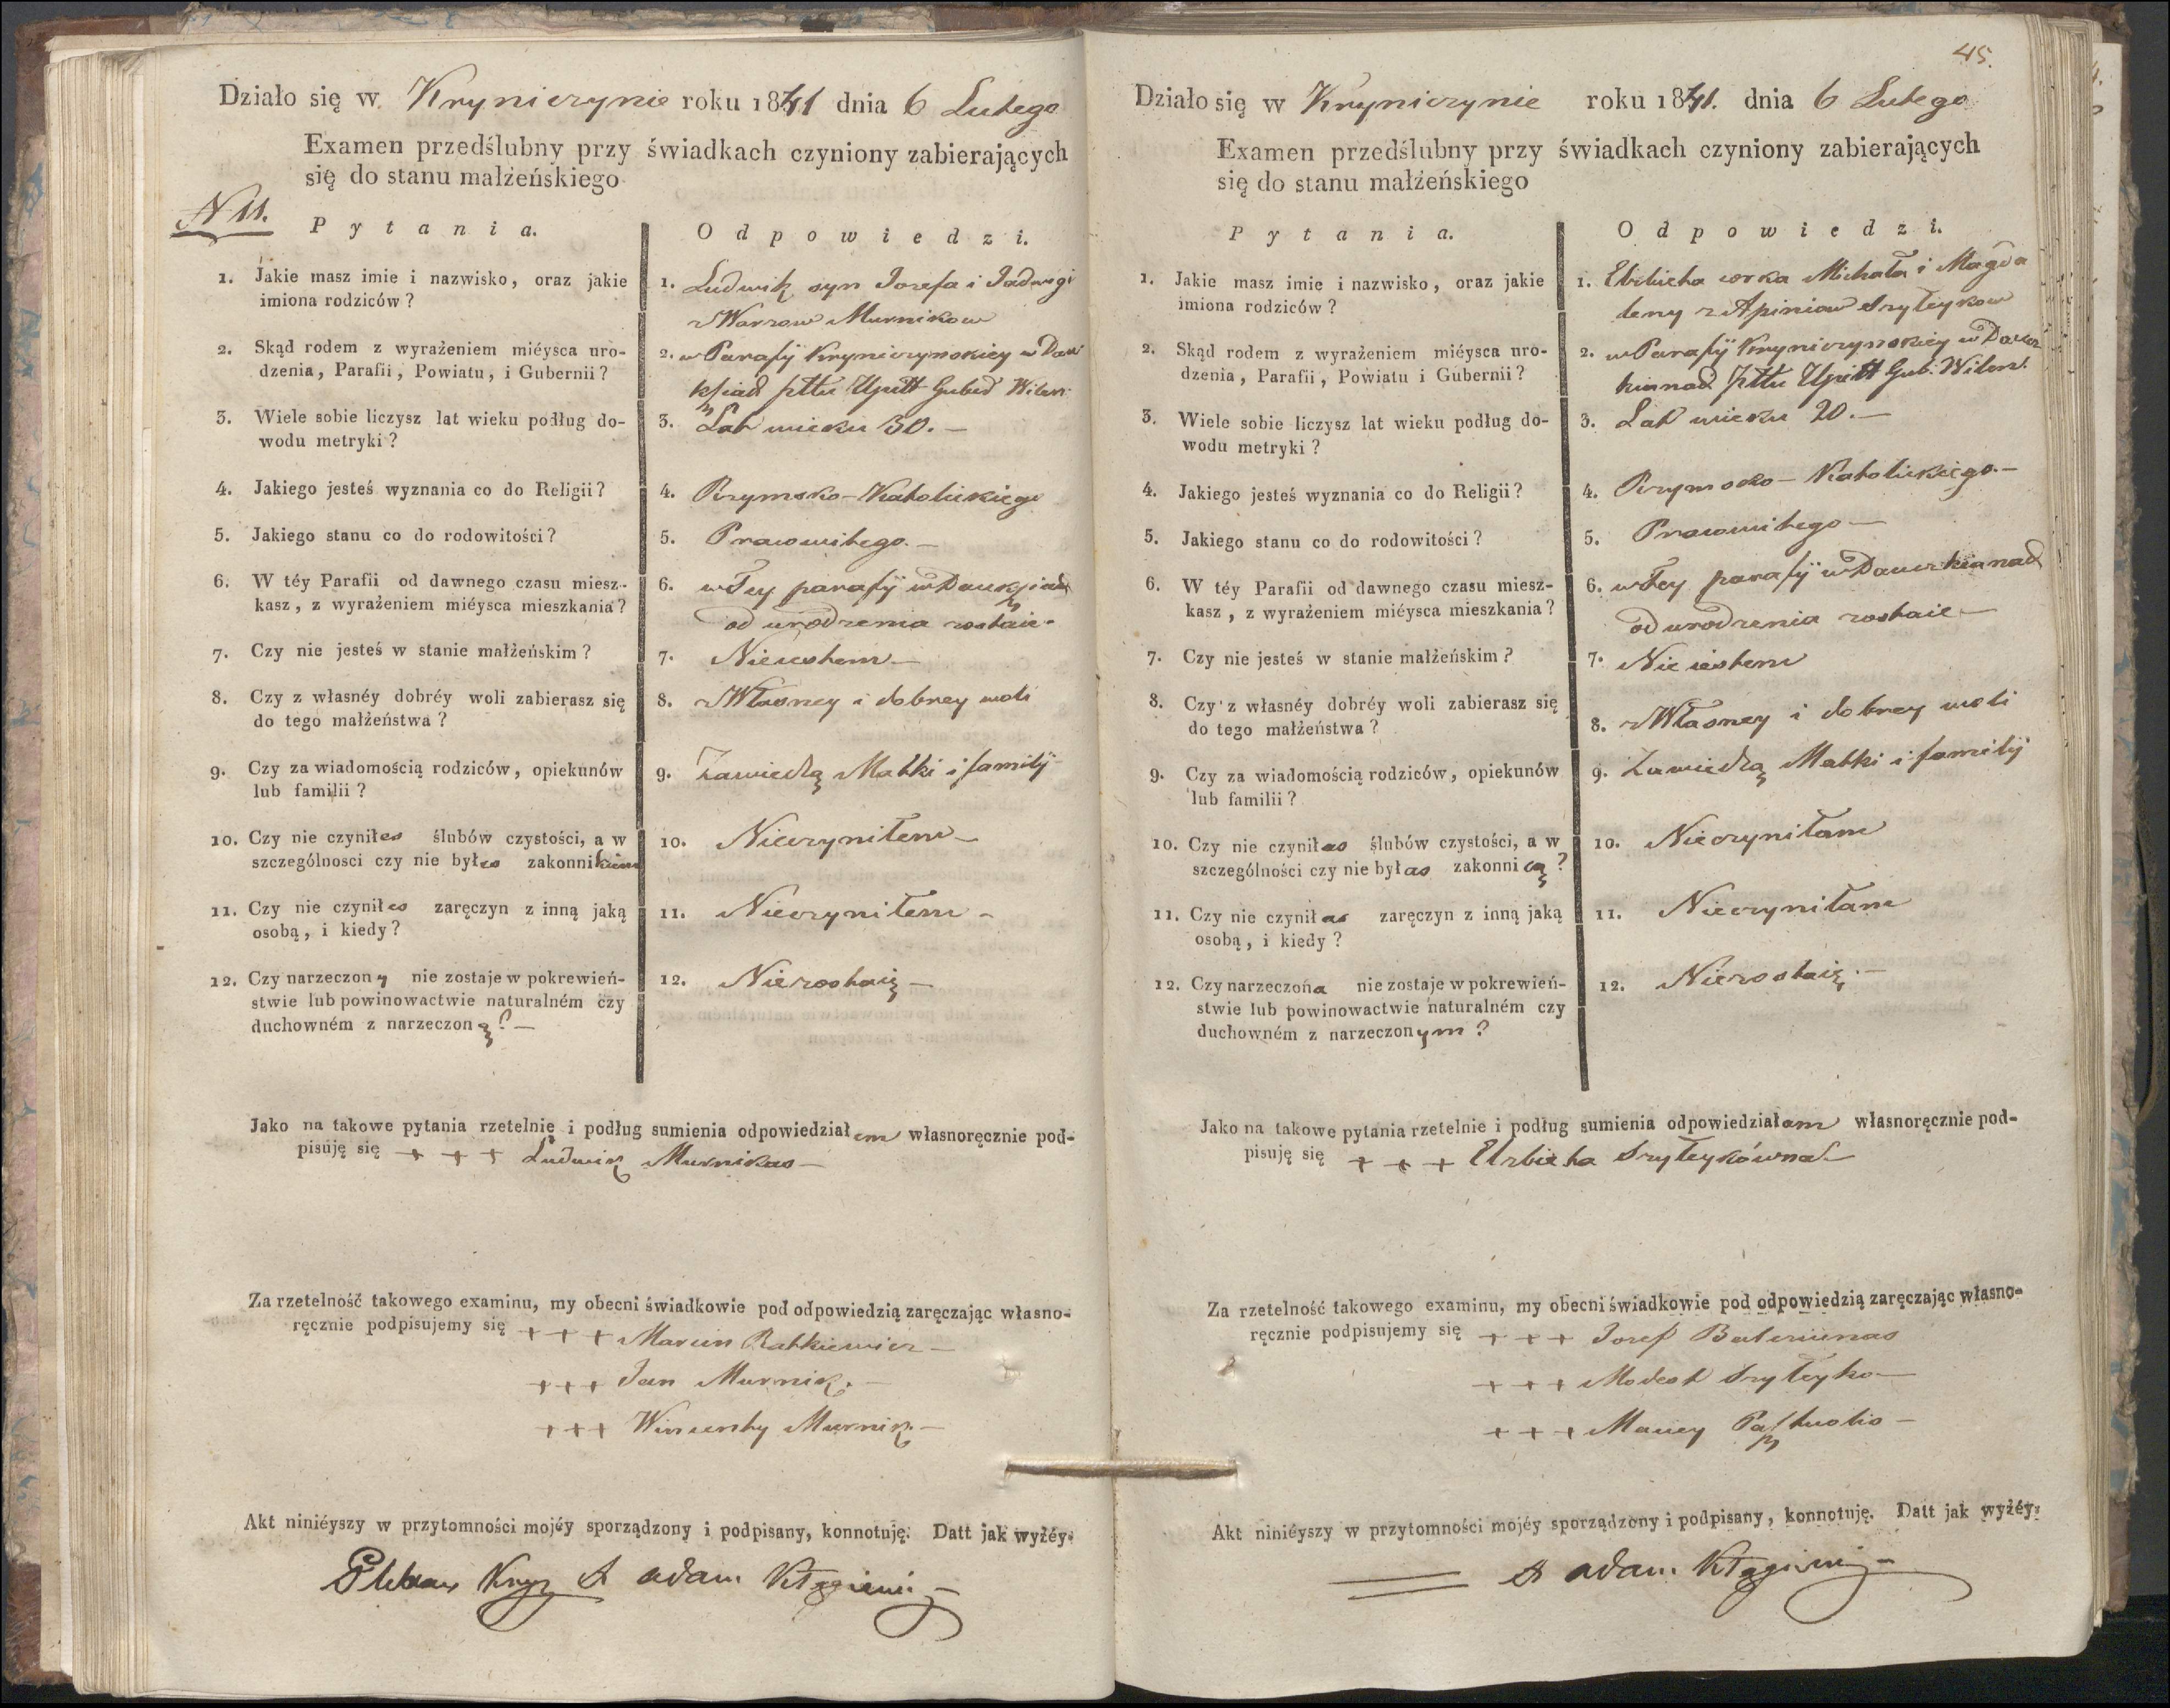 Działo się w Kryniczynie roku 1841 dnia 6 Lutego
Examen przedślubny przy świadkach czyniony zabierających
się do stanu małżeńskiego
N 11.
Pytania.
Odpowiedzi.
1. Jakie masz imie i nazwisko, oraz jakie
imiona rodziców?
1. Ludwik syn Jozefa i Jadwigi
Murnikow
2. Skąd rodem z wyrażeniem miéysca uro-
dzenia, Parafii, Powiatu, i Gubernii?
2. w Parafÿ Kryniczynskiey w
pttu Upitt Guber Wilen:
3. Wiele sobie liczysz lat wieku podług do-
wodu metryki?
3. Lat wieku 30. —
4. Jakiego jesteś wyznania co do Religii?
4. Rzymsko-Katolickiego
5. Jakiego stanu co do rodowitości?
5. Prawowitego. —
6. W téy Parafii od dawnego czasu miesz-
kasz, z wyrażeniem miéysca mieszkania?
6. w Tey parafÿ w
od urodzenia zostaie.
7. Czy nie jesteś w stanie małżeńskim?
7. Nieiestem —
8. Czy z własnéy dobréy woli zabierasz się
do tego małżeństwa?
8. z Własney i dobrey woli
9. Czy za wiadomością rodziców, opiekunów
lub familii?
9. Zawiedzą Matki i familÿ
10. Czy nie czyniłes ślubów czystości, a w
szczególnosci czy nie byłes zakonnikiem
10. Nieczyniłem —
11. Czy nie czyniłes zaręczyn z inną jaką
osobą, i kiedy?
11. Nieczyniłem —
12. Czy narzeczony nie zostaje w pokrewień-
stwie lub powinowactwie naturalném czy
duchowném z narzeczoną? —
12. Niezostaię —
Jako na takowe pytania rzetelnie i podług sumienia odpowiedziałem własnoręcznie pod-
pisuję się + + + Ludwik Murnikas —
Za rzetelność takowego examinu, my obecni świadkowie pod odpowiedzią zaręczając własno-
ręcznie podpisujemy się + + + Marcin Ratkiewicz —
+++ Jan Murnik. —
+++ Wincenty Murnik. —
Akt niniéyszy w przytomności mojéy sporządzony i podpisany, konnotuję. Datt jak wyżéy.
Pleban X Adam
45.
Działo się w Kryniczynie roku 1841. dnia 6 Lutego
Examen przedślubny przy świadkach czyniony zabierających
się do stanu małżeńskiego
Pytania.
Odpowiedzi.
1. Jakie masz imie i nazwisko, oraz jakie
imiona rodziców?
1. Elzbieta corka Michała i Magda
leny z Apiniow Szyłeykow
2. Skąd rodem z wyrażeniem miéysca uro-
dzenia, Parafii, Powiatu i Gubernii?
2. w Parafÿ Kryniczynskiey w
pttu Upitt Gub: Wilens.
3. Wiele sobie liczysz lat wieku podług do-
wodu metryki?
3. Lat wieku 20. —
4. Jakiego jesteś wyznania co do Religii?
4. Rzymsko-Katolickiego. —
5. Jakiego stanu co do rodowitości?
5. Prawowitego —
6. W téy Parafii od dawnego czasu miesz-
kasz, z wyrażeniem miéysca mieszkania?
6. w Tey parafÿ w
od urodzenia zostaie —
7. Czy nie jesteś w stanie małżeńskim?
7. Nie iestem
8. Czy z własnéy dobréy woli zabierasz się
do tego małżeństwa?
8. z Własney i dobrey woli
9. Czy za wiadomością rodziców, opiekunów
lub familii?
9. Zawiedzą Matki i familÿ
10. Czy nie czyniłas ślubów czystości, a w
szczególności czy nie byłas zakonnicą?
10. Nieczyniłam
11. Czy nie czyniłas zaręczyn z inną jaką
osobą, i kiedy?
11. Nieczyniłam
12. Czy narzeczona nie zostaje w pokrewień-
stwie lub powinowactwie naturalném czy
duchowném z narzeczonym?
12. Niezostaię. —
Jako na takowe pytania rzetelnie i podług sumienia odpowiedziałam własnoręcznie pod-
pisuję się + + + Elzbieta Szyłeykówna —
Za rzetelność takowego examinu, my obecni świadkowie pod odpowiedzią zaręczając własno-
ręcznie podpisujemy się + + + Jozef
+ + + Modest Szyłeyko —
+ + + Maciey
Akt niniéyszy w przytomności mojéy sporządzony i podpisany, konnotuję. Datt jak wyżéy.
X Adam